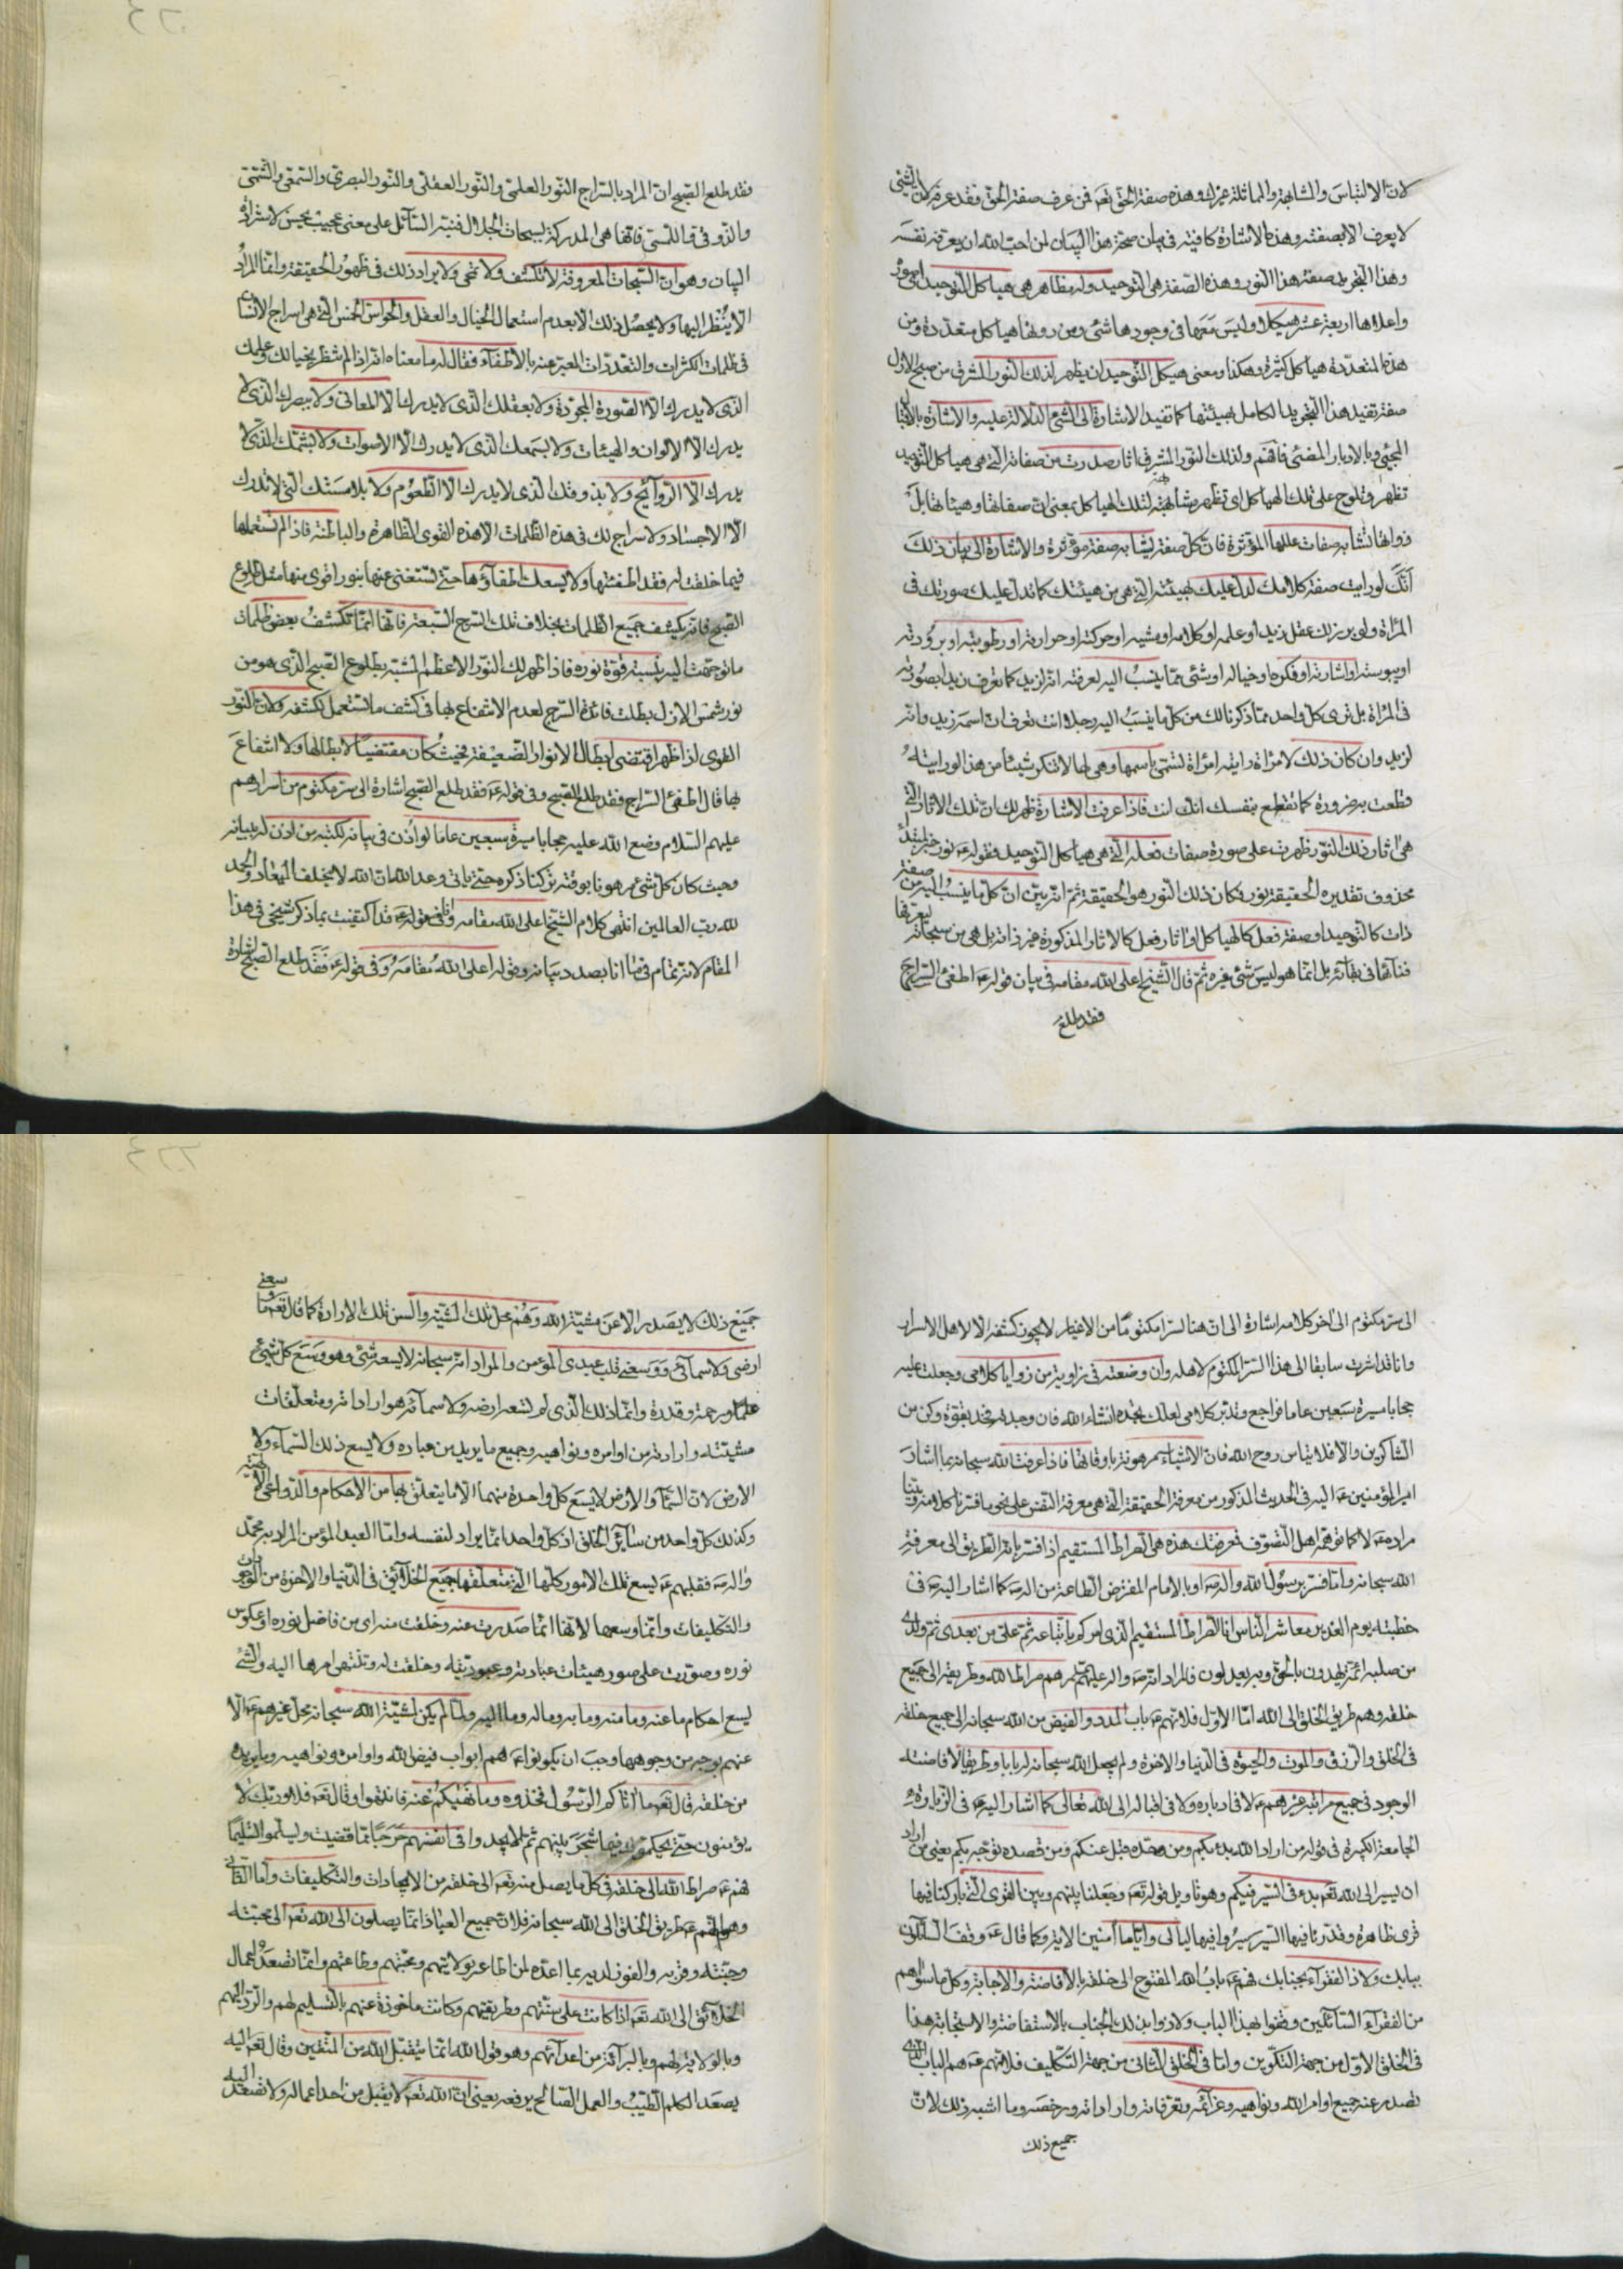 لانّ الالتباس والمشابهة والمماثلة غيرك وهذه صفة الحقّ تعه فمن عرف صفة الحقّ فقد عرفه لانّ الشئ
لا يعرف الا بصفته وهذه الاشارة كافية فى بيان صحّة هذا البيان لمن احبّ الله ان يعرّفه نفسه
وهذا التجريد صفة هذا النور وهذه الصّفة هى التوحيد وله مظاهر هى هياكل التوحيد
واعلاها اربعة عشر هيكلا وليس معها فى وجودها شئ ومن دونها هياكل متعدّدة ومن
هذه المتعدّدة هياكل كثيرة وهكذا ومعنى هيكل التوحيد ان يظهر لذلك النور المشرق من صبح الازل
صفة تفيد هذا التجريد الكامل بهيئتها كما تفيد الاشارة الى الشئ الدّلالة عليه والاشارة بالاقبال
المجيئ وبالادبار المضىّ فافهم ولذلك النور المشرق اثار صدرت من صفاته الّتى هى هياكل التوحيد
تظهر وتلوح على تلك الهياكل اى تظهر مشابهة لتلك الهياكل بمعنى انّ صفاتها وهيئاتها بل
ذواتها تشابه صفات عللها المؤثرة فانّ كل صفة يشابه صفة مؤثره والاشارة الى بيان ذلك
انّك لو رايت صفة كلامك لدلّ عليك بهيئته الّتى هى من هيئتك كما تدلّ عليك صورتك فى
المرآة ولو برز لك عقل زيد او علمه او كلامه او مشيه او حركته او حرارته او رطوبته او برودته
او يبوسته او اشارته او فكره او خياله او شئ ممّا ينسب اليه لعرفته انّه لزيد كما تعرف زيدا بصورته
فى المرآة بل ترى كل واحد ممّا ذكرنا لك من كل ما ينسب اليه رجلا انت تعرف انّ اسمه زيد وانّه
لزيد وان كان ذلك لامراة رايته امراة تسمّى باسمها وهى لها لا تنكر شيئا من هذا لو رايته
وقطعت به ضرورة كما تقطع بنفسك انك انت فاذا عرفت الاشارة ظهر لك انّ تلك الاثار الّتى
هى اثار ذلك النور ظهرت على صورة صفات فعله الّتى هى هياكل التوحيد فقوله ع نور خبر مبتدأ
محذوف تقديره الحقيقة نور فكان ذلك النور هو الحقيقة ثم انّه بيّن انّ كل ما ينسب اليه من صفة
ذات كالتوحيد او صفة فعل كالهياكل او اثار فعل كالاثار المذكورة غير ذاته بل هى من سبحاته
فنائها فى بقائه بل انّما هو ليس شئ غيره ثم قال الشيخ اعلى الله مقامه فى بيان قوله ع اطفئ السّراج
فقد طلع
فقد طلع الصّبح انّ المراد بالسّراج النّور العلمىّ والنّور العقلىّ والنّور البصرىّ والسّمعىّ والشّمىّ
والذوقى واللّمسى فانّها هى المدركة لسبحات الجلال فنبّه السّائل على معنى عجيب يحسن لاستدارة
البيان وهو انّ السّبحات المعروفة لا تكشف ولا تمحى ولا يراد ذلك فى ظهور الحقيقة وانّما المراد
الّا ينظر اليها ولا يحصل ذلك الّا بعدم استعمال الخيال والعقل والحواسّ الخمس الّتى هى سراج الانسان
فى ظلمات الكثرات والتعدّدات المعبّر عنه بالاطفاء فقال له ما معناه انّه اذا لم تنظر بخيالك وعلمك
الذى لا يدرك الّا الصّورة المجرّدة ولا بعقلك الّذى لا يدرك الّا المعانى ولا ببصرك الّذى لا
يدرك الّا الالوان والهيئات ولا بسمعك الذى لا يدرك الّا الاصوات ولا بشمّك الّذى لا
يدرك الّا الرّوائح ولا بذوقك الّذى لا يدرك الّا الطّعوم ولا بلامستك التى لا تدرك
الّا الاجساد ولا سراج لك فى هذه الظّلمات الّا هذه القوى الظّاهرة والباطنة فاذا لم تستعملها
فيما خلقت له فقد اطفئتها ولا يسعك اطفاؤها حتى تستغنى عنها بنور اقوى منها مثل طلوع
الصّبح فانّه يكشف جميع الظّلمات بخلاف تلك السّرج السّبعة فانّها انّما تكشف بعض ظلمات
ما توجّهت اليه بنسبة قوّة نوره فاذا ظهر لك النّور الاعظم المشبّه بطلوع الصّبح الذى هو من
نور شمس الازل بطلت فائدة السّرج لعدم الانتفاع بها فى كشف ما تستعمل لكشفه ولانّ النّور
القوى اذا ظهر اقتضى ابطال الانوار الضّعيفة بحيث كان مقتضيا لابطالها ولا انتفاع
بها قال اطفئ السّراج فقد طلع الصّبح وفى قوله ع فقد طلع الصّبح اشارة الى سرّ مكتوم من اسرارهم
عليهم السّلام وضع الله عليه حجابا مسيرة سبعين عاما لو اُذن فى بيانه لكتبه من اذن له ببيانه
وحيث كان كل شئ مرهونا بوقته تركنا ذكره حتى ياتى وعد الله انّ الله لا يخلف الميعاد والحمد
لله رب العالمين انتهى كلام الشيخ اعلى الله مقامه وانّى قد اكتفيت بما ذكر شيخى فى هذا
المقام لانّه تمام فى ما انا بصدد بيانه وقوله اعلى الله مقامه وفى قوله ع فقد طلع الصّبح اشارة
الى سرّ مكتوم الى اخر كلامه اشارة الى انّ هنا لسرّا مكتوما من الاغيار لا يجوز كشفه الّا لاهل الاسرار
وانا قد اشرت سابقا الى هذا السّرّ المكتوم لاهله وان وضعته فى زاوية من زوايا كلامى وجعلت عليه
حجابا مسيرة سبعين عاما فراجع وتدبّر كلامى لعلّك تجده انشاء الله فان وجدته فخذه بقوة وكن من
الشاكرين والّا فلا تيأس من روح الله فانّ الاشياء مرهونة باوقاتها فاذا عرفت الله سبحانه بما اشار
امير المؤمنين ع اليه فى الحديث المذكور من معرفة الحقيقة الّتى هى معرفة النّفس على نحو ما فسّرنا كلامه وبيّنا
مراده ع لا كما توهّمه اهل التّصوّف فمعرفتك هذه هى الصّراط المستقيم اذا فسّر بانّه الطّريق الى معرفة
الله سبحانه وامّا اذا فسّر برسول الله واله ص او بالامام المفترض الطّاعة من اله ع كما اشار اليه ص فى
خطبته يوم الغدير معاشر النّاس انا الصّراط المستقيم الّذى امركم باتّباعه ثمّ علىّ من بعدى ثمّ ولدى
من صلبه ائمّة يهدون بالحقّ وبه يعدلون فالمراد انّه ص واله عليهم السلم هم صراط الله وطريقه الى جميع
خلقه وهم طريق الخلق الى الله امّا الاوّل فلانّهم ع باب المدد والفيض من الله سبحانه الى جميع خلقه
فى الخلق والرّزق والموت والحيوة فى الدّنيا والاخرة ولم يجعل الله سبحانه له بابا وطريقا لافاضته
الوجود فى جميع مراتبه غيرهم ع لا فى ادباره ولا فى اقباله الى الله تعالى كما اشار اليه ع فى الزيارة
الجامعة الكبيرة فى قوله من اراد الله بدء بكم ومن وحّده قبل عنكم ومن قصده توجّه بكم يعنى من اراد
ان يسير الى الله تعه بدء فى السّير فيكم وهو تاويل قوله تعه وجعلنا بينهم وبين القرى الّتى باركنا فيها
قرى ظاهرة وقدّرنا فيها السّير سيروا فيها ليالى وايّاما آمنين الاية وكما قال ع وقف السّائلون
ببابك ولاذ الفقراء بجنابك فهم ع باب الله المفتوح الى خلقه بالافاضة والاجابة وكل ما سواهم
من الفقراء السّائلين وقفوا بهذا الباب ولاذوا بذلك الجناب بالاستفاضة والاستجابة هذا
فى الخلق الاوّل من جهة التّكوين وامّا فى الخلق الثّانى من جهة التّكليف فلانّهم ع هم الباب الّذى
تصدر عنه جميع اوامر الله ونواهيه وعزائمه وتعرّفاته واراداته ورخصه وما اشبه ذلك لانّ
جميع ذلك
جميع ذلك لا يصدر الّا عن مشيّة الله وهم محلّ تلك المشيّة والسن تلك الارادة كما قال تعه ما وسعنى
ارضى ولا سمائى ووسعنى قلب عبدى المؤمن والمراد انّه سبحانه لا يسعه شئ وهو وسع كل شئ
علما ورحمة وقدرة وانّما ذلك الّذى لم تسعه ارضه ولا سمائه هو اراداته ومتعلّقات
مشيّته وارادته من اوامره ونواهيه وجميع ما يريد من عباده ولا يسع ذلك السّماء ولا
الارض لانّ السّماء والارض لا يسع كل واحدة منهما الّا ما يتعلّق بها من الاحكام والدّواعى الالهية
وكذلك كل واحد من سائر الخلق اذ كل واحد انّما يراد لنفسه وامّا العبد المؤمن المراد به محمّد
واله ص فقلبهم ع يسع تلك الامور كلّها الّتى متعلّقها جميع الخلائق فى الدّنيا والاخرة من الوجودات
والتّكليفات وانّما وسعها لانّها انّما صدرت عنه وخلقت منه اى من فاضل نوره او عكوس
نوره وصوّرت على صور هيئات عباداته وعبوديّته وخلقت له وتنتهى امرها اليه والشئ
يسع احكام ما عنه وما منه وما به وما له وما اليه ولمّا لم يكن لمشيّة الله سبحانه محلّ غيرهم ع الّا
عنهم بوجه من وجوهها وجب ان يكونوا ع هم ابواب فيض الله واوامره ونواهيه وما يريده
من خلقه قال تعه ما اتاكم الرّسول فخذوه وما نهيكم عنه فانتهوا وقال تعه فلا وربّك لا
يؤمنون حتى يحكّموك فيما شجر بينهم ثمّ لا يجدوا فى انفسهم حرجا ممّا قضيت ويسلّموا تسليما
فهم ع صراط الله الى خلقه فى كل ما يصل منه تعه الى خلقه من الايجادات والتّكليفات وامّا الثّانى
وهو انّهم ع طريق الخلق الى الله سبحانه فلانّ جميع العباد انّما يصلون الى الله تعه الى محبّته
وجنّته وقربه والفوز لديه بما اعدّه لمن اطاعه بولايتهم ومحبّتهم وطاعتهم وانّما تصعد اعمال
الخلائق الى الله تعه اذا كانت على سنّتهم وطريقتهم وكانت ماخوذة عنهم بالتّسليم لهم والرّد اليهم
وبالولاية لهم وبالبرائة من اعدائهم وهو قول الله انّما يتقبّل الله من المتّقين وقال تعه اليه
يصعد الكلم الطّيّب والعمل الصّالح يرفعه يعنى انّ الله تعه لا يقبل من احد اعماله ولا تصعد اليه